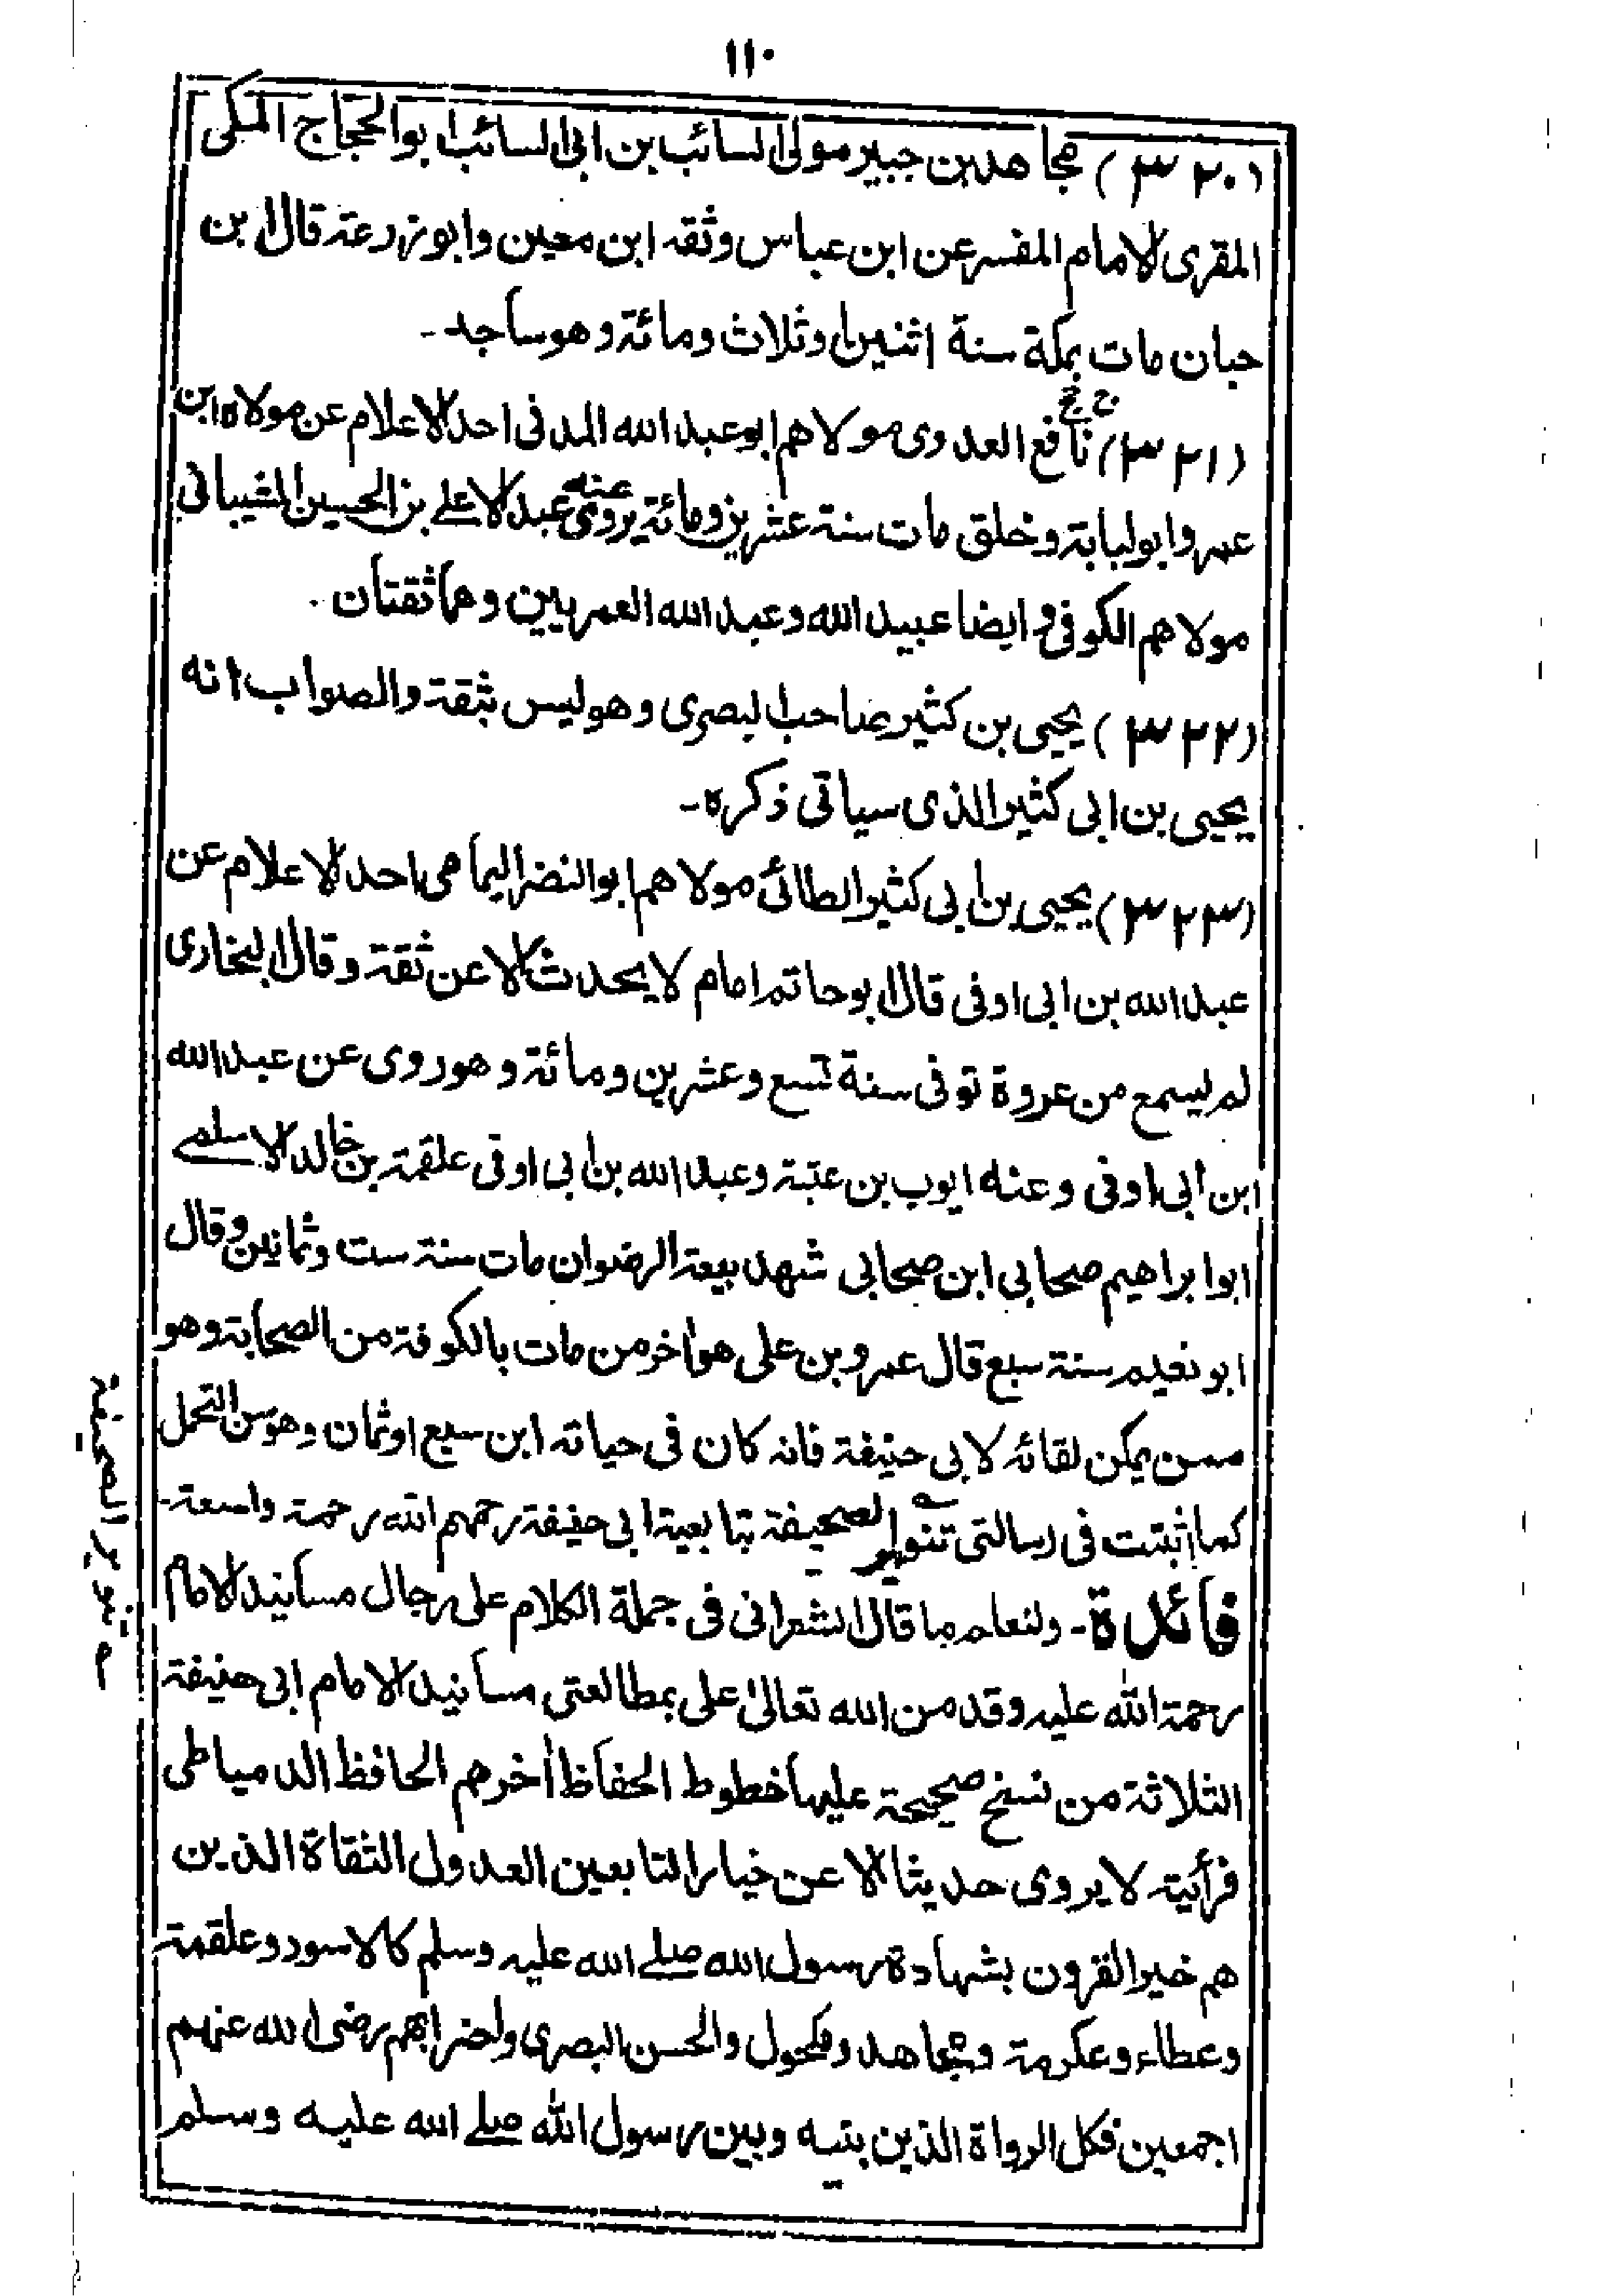 ١١٠
(٣٢٠) مجاهد بن جبير مولى السائب بن ابى السائب ابو الحجاج المكى
المقرى الامام المفسر عن ابن عباس وثقه ابن معين وابوزرعة قال ابن
حبان مات بمكة سنة اثنين او ثلاث ومائة وهو ساجد -
(٣٢١) نافع العدوى مولاهم ابو عبد الله المدنى احد الاعلام عن مولاه ابن
عمر وابو لبابة وخلق مات سنة عشرين ومائة يروى عنه عبد الاعلے بن الحسين الشيبانى
مولاهم الكوفى وايضا عبيد الله وعبد الله العمريين وهما ثقتان .
(٣٢٢) يحيى بن كثير صاحب البصرى وهو ليس بثقة والصواب انه
يحيى بن ابى كثير الذى سياتى ذكره -
(٣٢٣) يحيى بن ابى كثير الطائى مولاهم ابو النضر اليمامى احد الاعلام عن
عبد الله بن ابى اوفى قال ابو حاتم امام لا يحدث الا عن ثقة وقال البخارى
لم يسمع من عروة توفى سنة تسع وعشرين ومائة وهو روى عن عبد الله
ابن ابى اوفى وعنه ايوب بن عتبة وعبد الله بن ابى اوفى علقمة بن خالد الاسلمے
ابو ابراهيم صحابى ابن صحابى شهد بيعة الرضوان مات سنة ست وثمانين وقال
ابو نعيم سنة سبع قال عمرو بن على هو اخر من مات بالكوفة من الصحابة وهو
ممن يمكن لقائه لابى حنيفة فانه كان فى حياته ابن سبع او ثمان وهو سن التحمل
كما اثبتت فى رسالتى تنوير الصحيفة بتابعية ابى حنيفة رحمهم الله رحمة واسعة -
فائدة - ولنعلم ما قال الشعرانى فى جملة الكلام على رجال مسانيد الامام
رحمة الله عليه وقد من الله تعالىٰ على بمطالعتى مسانيد الامام ابى حنيفة
الثلاثة من نسخ صحيحة عليها خطوط الحفاظ أخرهم الحافظ الدمياطى
فرأيته لا يروى حديثا الا عن خيار التابعين العدول الثقاة الذين
هم خير القرون بشهادة رسول الله صلے الله عليه وسلم كالاسود وعلقمة
وعطاء وعكرمة ومجاهد ومكحول والحسن البصرى واضرابهم رضى الله عنهم
اجمعين فكل الرواة الذين بينه وبين رسول الله صلے الله عليه وسلم
تنوير الصحيفة